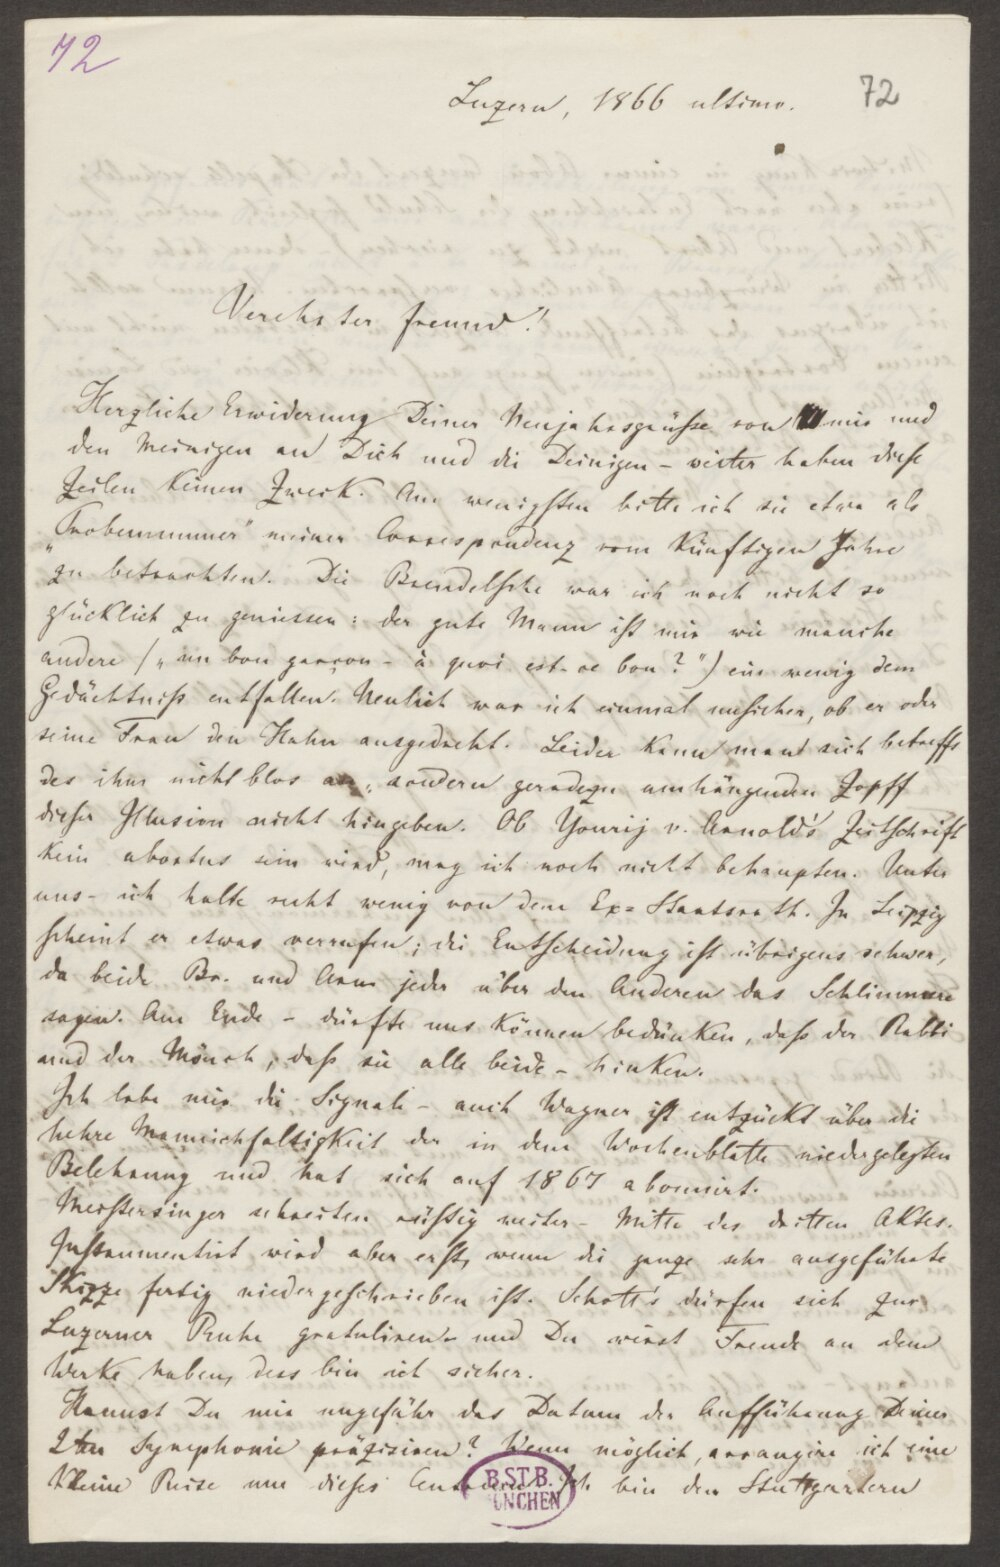 72
Luzern, 1866 ultimo.
72
Verehrter Freund!
Herzliche Erwiderung Deiner Neujahrsgrüße von mir und
den Meinigen an Dich und die Deinigen – weiter haben diese
Zeilen keinen Zweck. Am wenigsten bitte ich sie etwa als
„Probenummer" meiner Correspondenz vom künftigen Jahre
zu betrachten. Die Brendelsche war ich noch nicht so
glücklich zu geniessen: der gute Mann ist mir wie manche
andere („un bon garçon – à quoi est-ce bon?") ein wenig dem
Gedächtniss entfallen. Neulich war ich einmal unsicher, ob er oder
seine Frau den Hahn ausgedreht. Leider kann man sich betreffs
des ihm nicht blos an-, sondern geradezu umhängenden Zopff
dieser Illusion nicht hingeben. Ob Yourij v. Arnold's Zeitschrift
kein abortus sein wird, mag ich noch nicht behaupten. Unter
uns – ich halte recht wenig von dem Ex-Staatsrath. In Leipzig
scheint er etwas verrufen; die Entscheidung ist übrigens schwer,
da beide Br. und Arn. jeder über den Anderen das Schlimmere
sagen. Am Ende – dürfte uns können bedünken, daß der Rabbi
und der Mönch, daß sie alle beide – hinken.
Ich lobe mir die Signale – auch Wagner ist entzückt über die
hehre Mannichfaltigkeit der in dem Wochenblatte niedergelegten
Belehrung und hat sich auf 1867 abonnirt.
Meistersinger schreiten rüstig weiter – Mitte des dritten Aktes.
Instrumentirt wird aber erst, wenn die ganze sehr ausgeführte
Skizze fertig niedergeschrieben ist. Schott's dürfen sich zur
Luzerner Ruhe gratuliren – und Du wirst Freude an dem
Werke haben, dess bin ich sicher.
Kannst Du mir ungefähr das Datum der Aufführung Deiner
2ten Symphonie präzisiren? Wenn möglich, arrangire ich eine
kleine Reise um dieses Centrum. Ich bin den Stuttgartern
B.ST.B.
MÜNCHEN